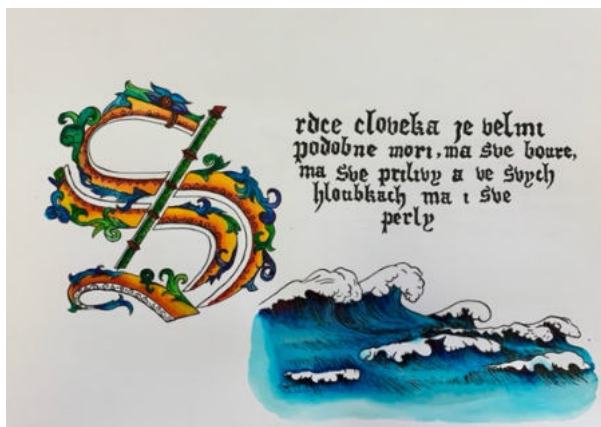 Srdce cloveka je velmi
podobne mori, ma sve boure,
ma sve prilivy a ve svych
hloubkach ma i sve
perly